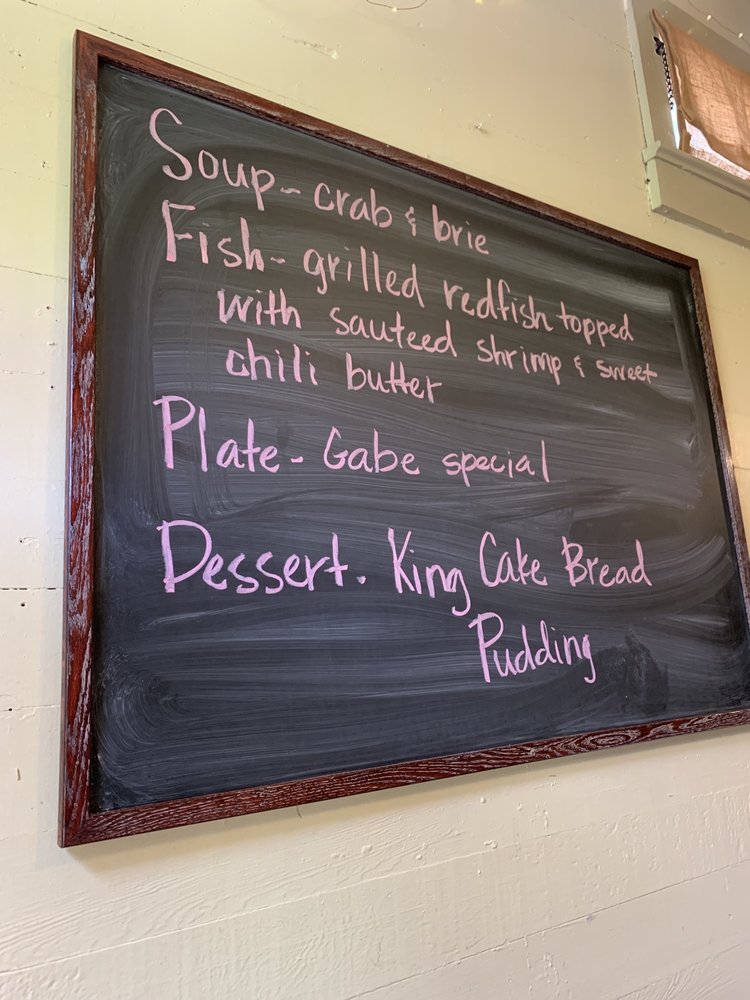 Soup - crab & brie
Fish - grilled redfish topped
with sauteed shrimp & sweet
chili butter
Plate - Gabe special
Dessert. King Cake Bread
Pudding